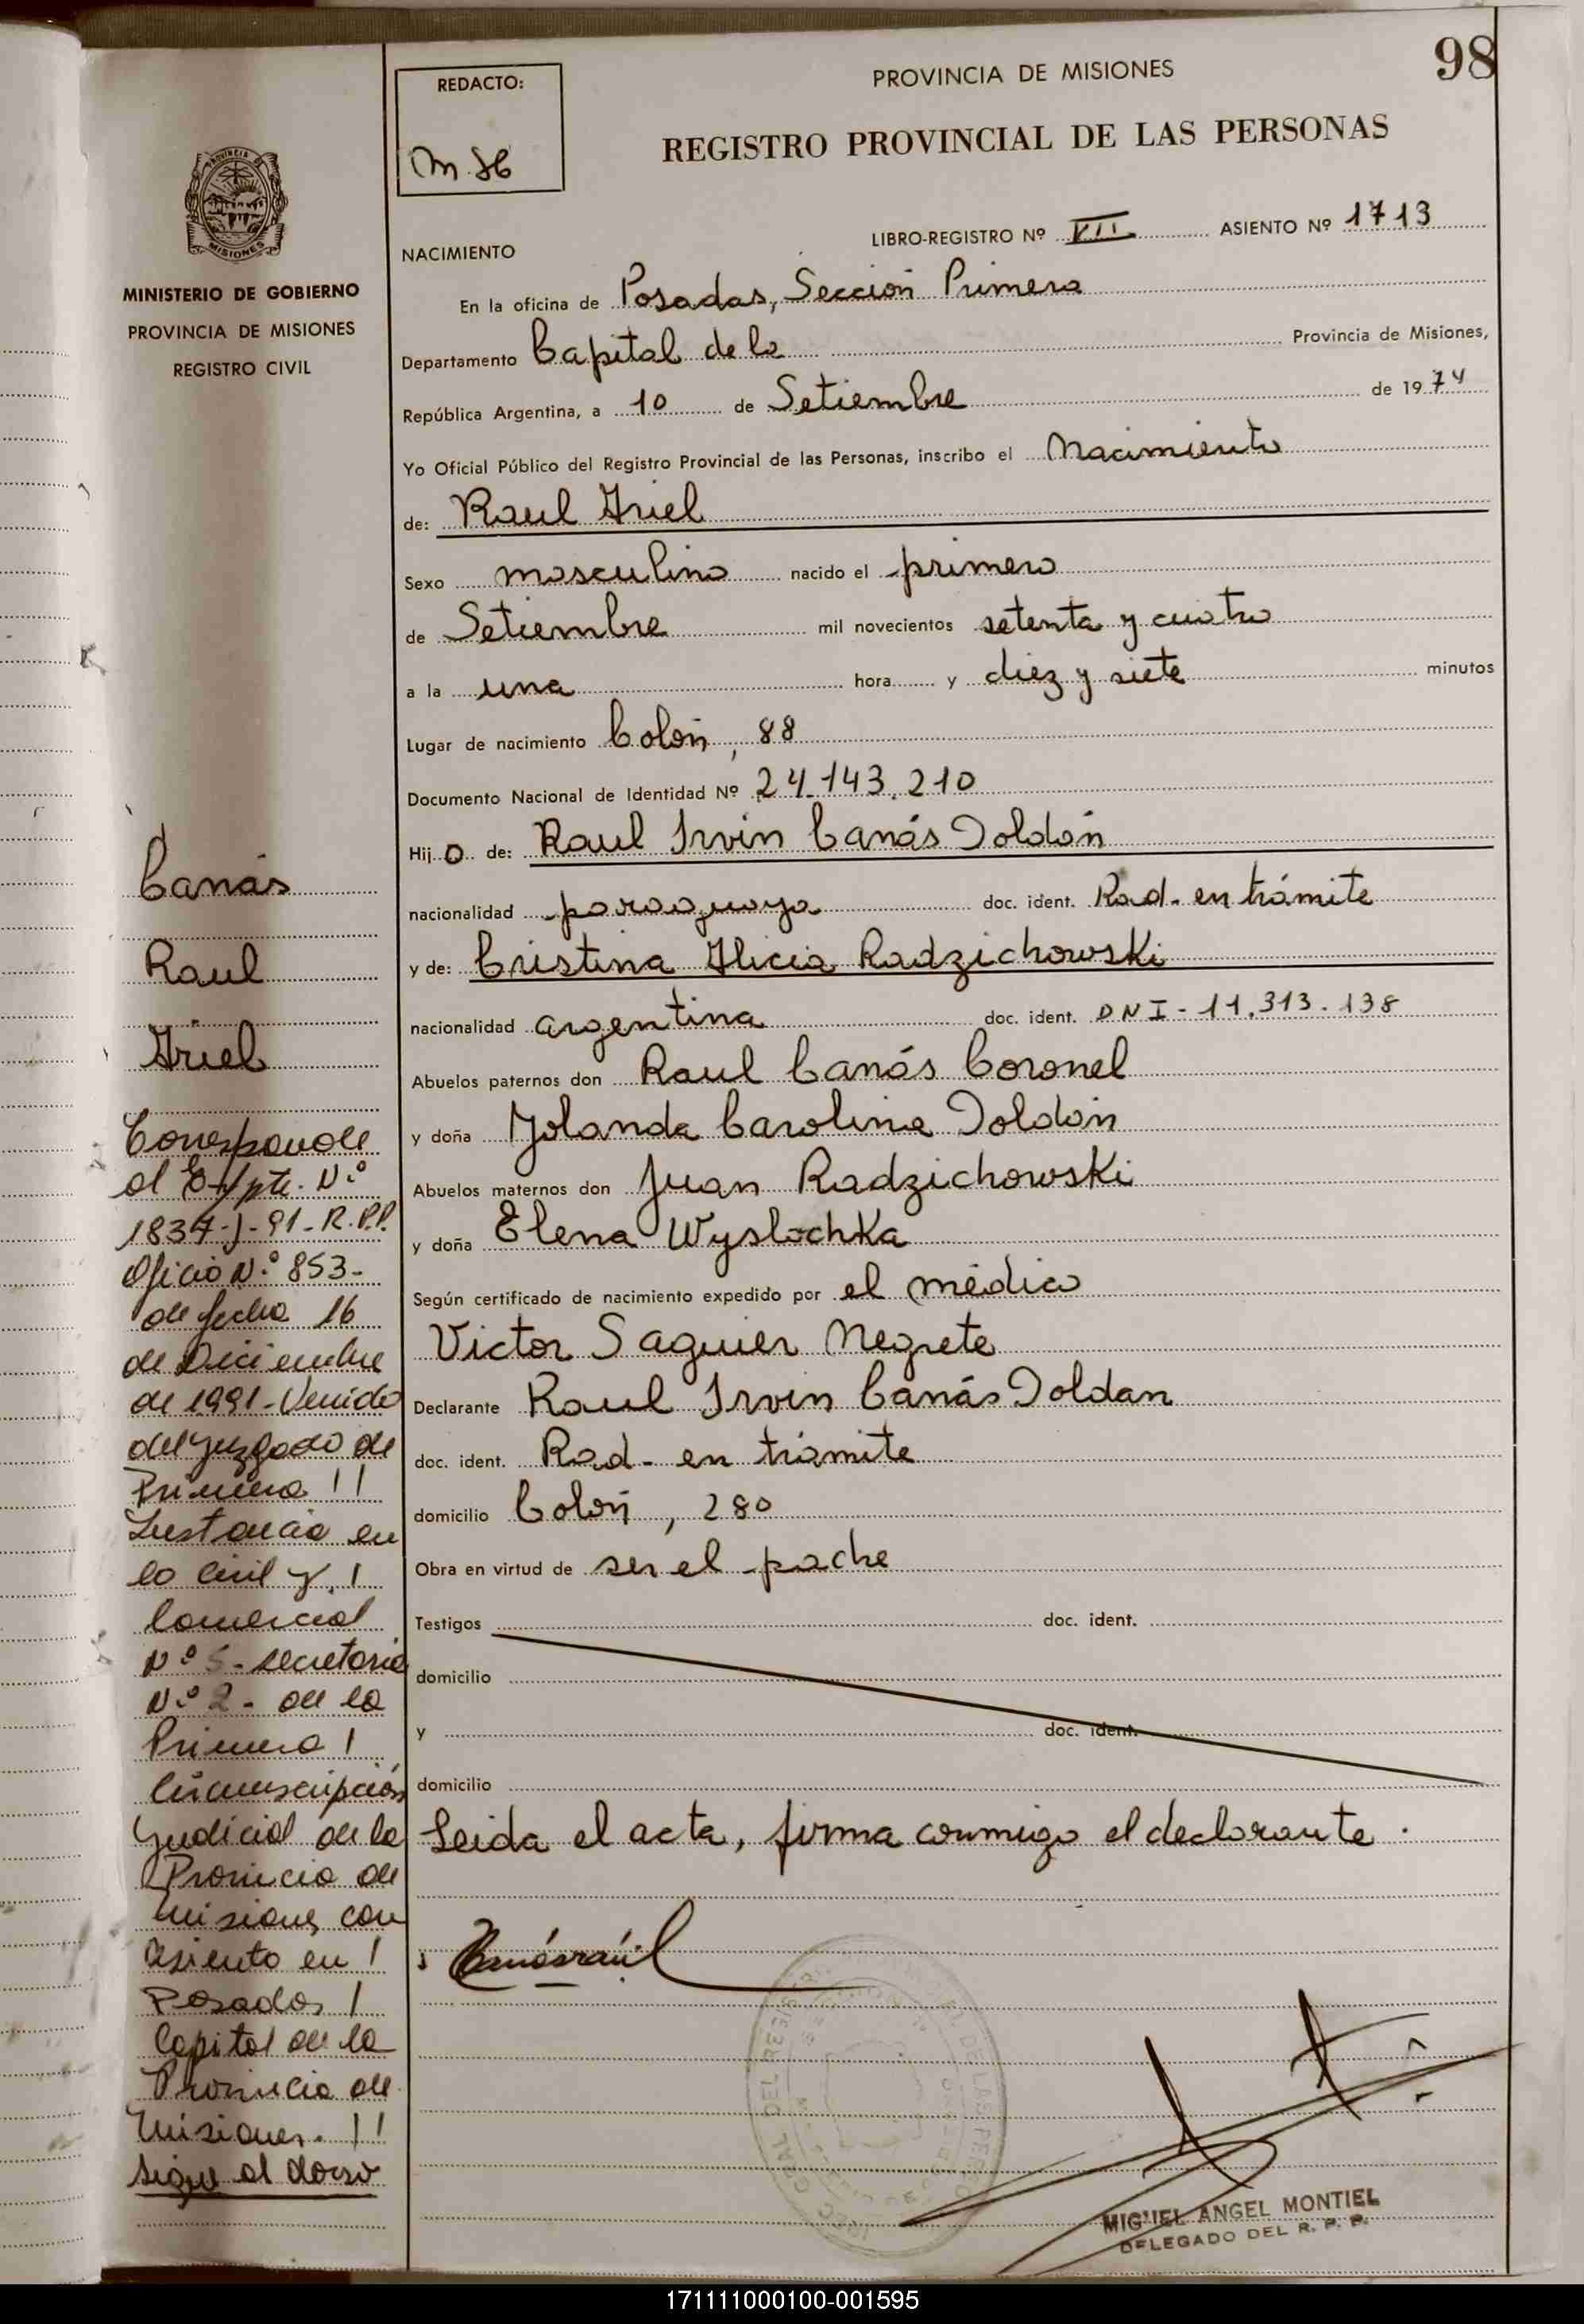 98
REDACTO:
PROVINCIA DE MISIONES
REGISTRO PROVINCIAL DE LAS PERSONAS
LIBRO-REGISTRO Nº VII ASIENTO Nº 1713
NACIMIENTO
En la oficina de Posadas, Sección Primera
Departamento Capital de la Provincia de Misiones,
República Argentina, a 10 de Setiembre de 1974
Yo Oficial Público del Registro Provincial de las Personas, inscribo el Nacimiento
de: Raul Ariel
Sexo masculino nacido el primero
de Setiembre mil novecientos setenta y cuatro
a la una hora y diez y siete minutos
Lugar de nacimiento Colón, 88
Documento Nacional de Identidad Nº 24.143.210
Hijo de: Raul Irvin Canás Doldán
nacionalidad paraguaya doc. ident. Rad. en trámite
y de: Cristina Alicia Radzichowski
nacionalidad argentina doc. ident. DNI-11.313.138
Abuelos paternos don Raul Canás Coronel
y doña Yolanda Carolina Doldán
Abuelos maternos don Juan Radzichowski
y doña Elena Wyslochka
Según certificado de nacimiento expedido por el médico
Victor Saguier Negrete
Declarante Raul Irvin Canás Doldan
doc. ident. Rad. en trámite
domicilio Colón, 280
Obra en virtud de ser el padre
Testigos doc. ident.
domicilio
y doc. ident.
domicilio
Leida el acta, firma conmigo el declarante.
MIGUEL ANGEL MONTIEL
DELEGADO DEL R. P. P.
PROVINCIA DE
MISIONES
MINISTERIO DE GOBIERNO
PROVINCIA DE MISIONES
REGISTRO CIVIL
Canás
Raul
Ariel
Corresponde
al Expte. Nº
1837-J-91-R.P.P.
Oficio Nº 853-
de fecha 16
de Diciembre
de 1991-Venido
del Juzgado de
Primera
Instancia en
lo Civil y
Comercial
Nº 5- secretaria
Nº 2- de la
Primera
Circunscripción
Judicial de la
Provincia de
Misiones con
asiento en
Posadas
Capital de la
Provincia de
Misiones.
Sigue al dorso
171111000100-001595